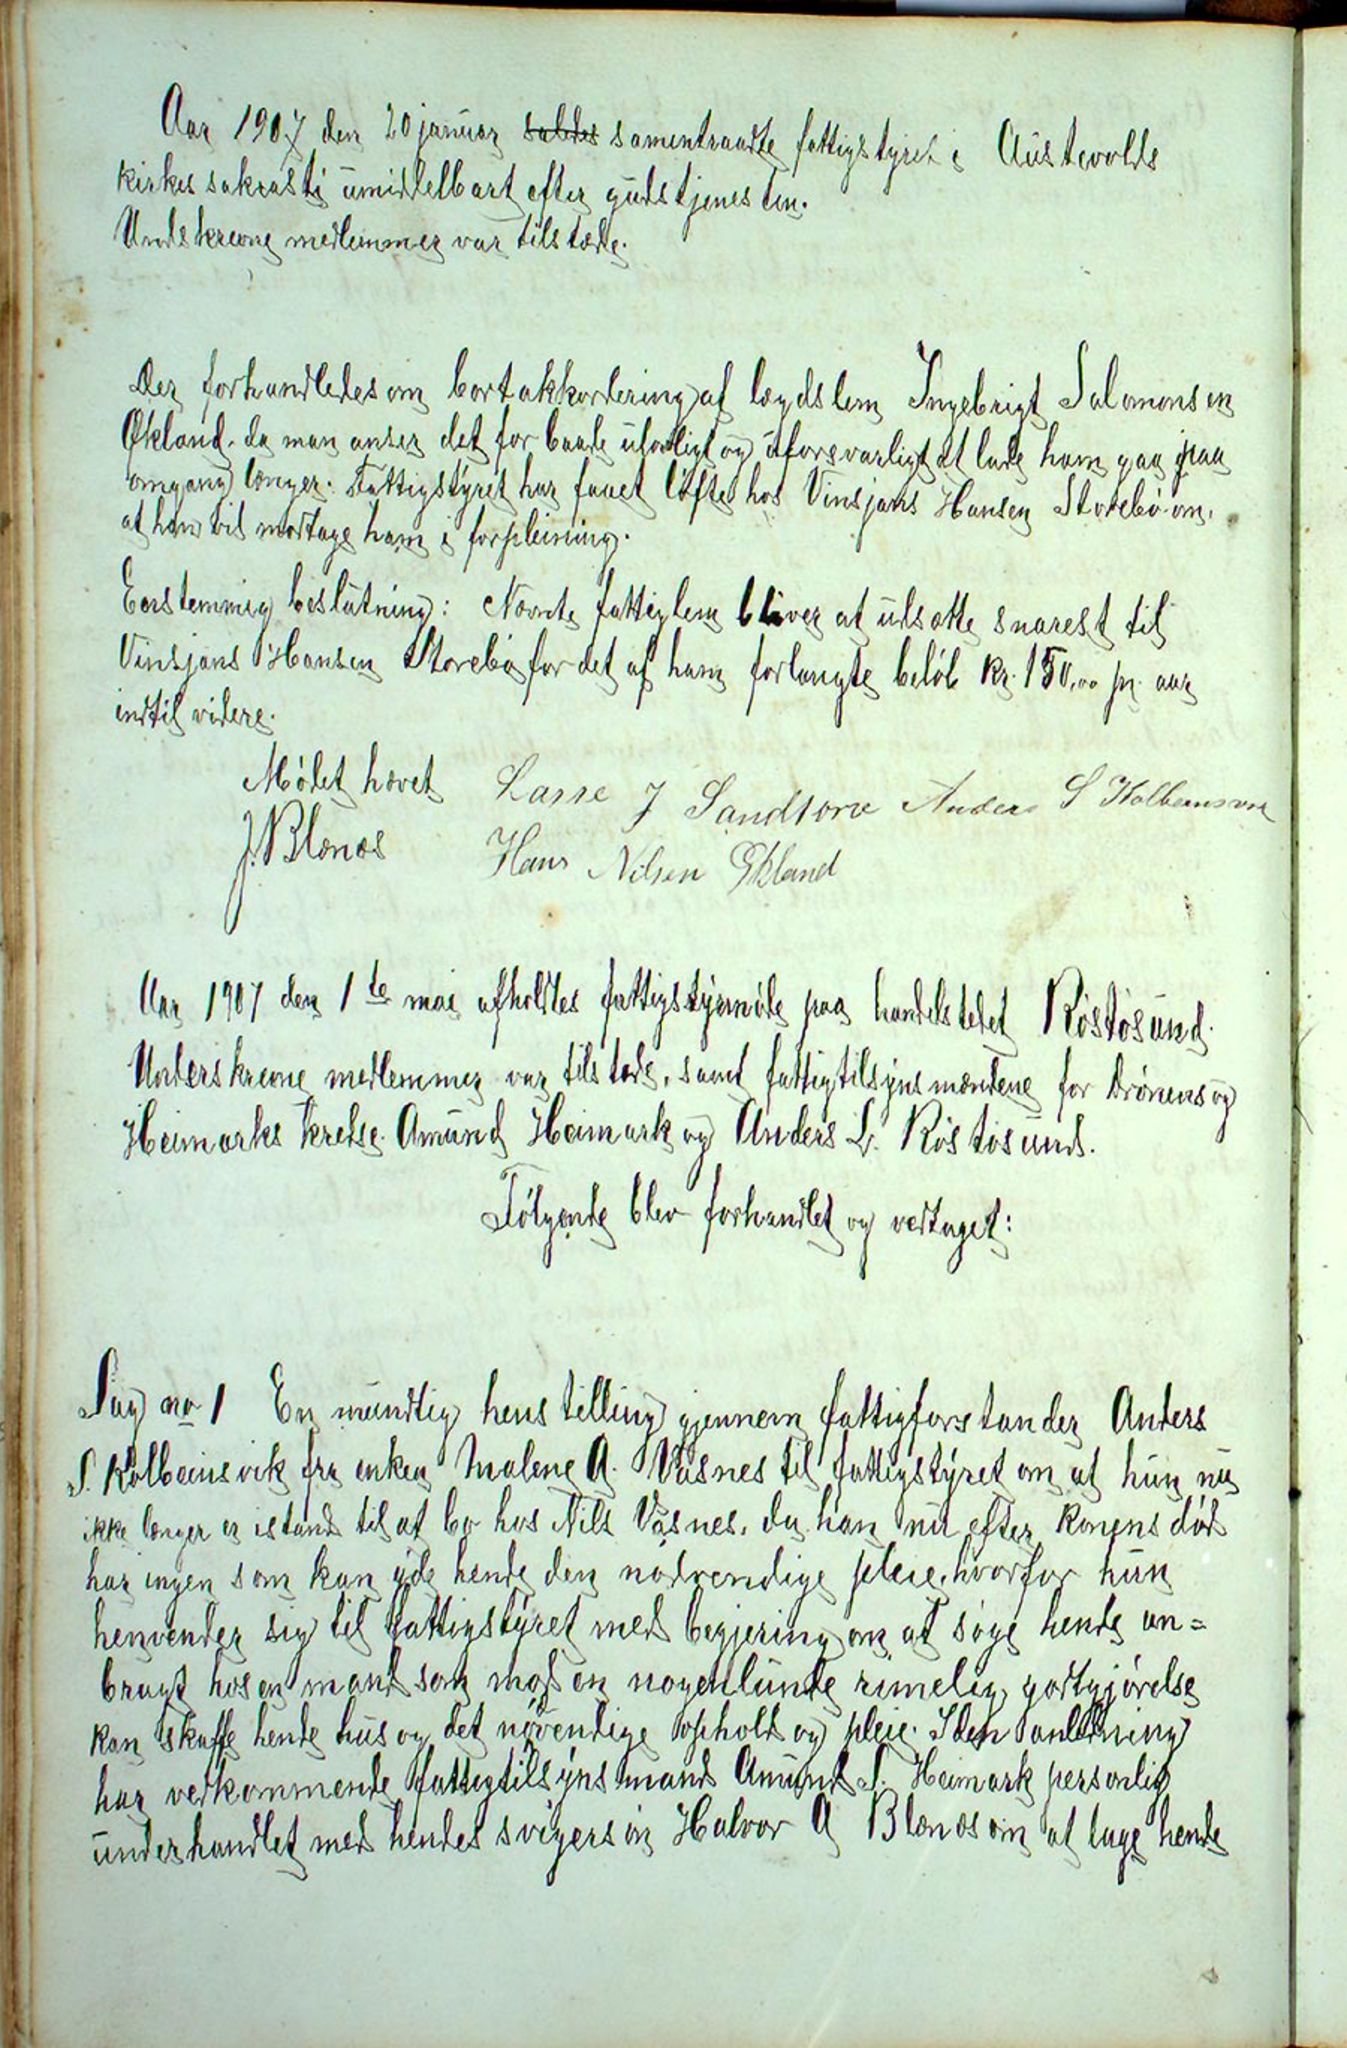 Aar 1907 den 20 januar samentraadte fattigstyret i Austevolds
kirkes sakrasti umiddelbart efter gudstjenesten.
Undskrevne medlemmer var tilstæde.
Der forhandledes om bortakkordering af lægdslem Ingebrigt Salomonsen
Økland. da man anser det for baade uforsvarligt at lade ham gaa paa
omgang længer. Fattigstyret har faaet løfte hos Vinsjans Hansen Storebø om,
at han vil modtage ham i forpleining.
Eenstemmig beslutning: Nævnte fattiglem bliver at udsætte snarest til
Vinsjans Hansen Storebø for det af ham forlangte beløb kr. 150,00 pr. aar
indtil videre.
Mødet hævet Lasse J Sandtorv Anders S Kolbeinsvik
J. Blænæs Hans Nilsen Økland
Aar 1907 den 1te mai afholdtes fattigstyremøde paa handelstedet Røstøsund.
Underskrevne medlemmer var tilstæde, samt fattigtilsynsmændene for Drønens og
Heimarks kredse. Amund Heimark og Anders L. Røstøsund.
Følgende blev forhandlet og vedtaget:
Sag no 1 En mundtlig henstilling gjennem fattigforstander Anders
S. Kolbeinsvik fra enken Malene A. Vasnes til fattigstyret om at hun nu
ikke længer er istand til at bo hos Nils Vasnes, da han nu efter konens død
har ingen som kan yde hende den nødvendige pleie, hvorfor hun
henvender sig til fattigstyret med begjering om at søge hende an=
bragt hos en mand som mod en nogenlunde rimelig godtgjørelse
kan skaffe hende hus og det nødvendige ophold og pleie. I den anledning
har vedkommende fattigtilsynsmand Amund S. Heimark personlig
underhandlet med hendes svigersøn Halvor A Blænæs om at tage hende